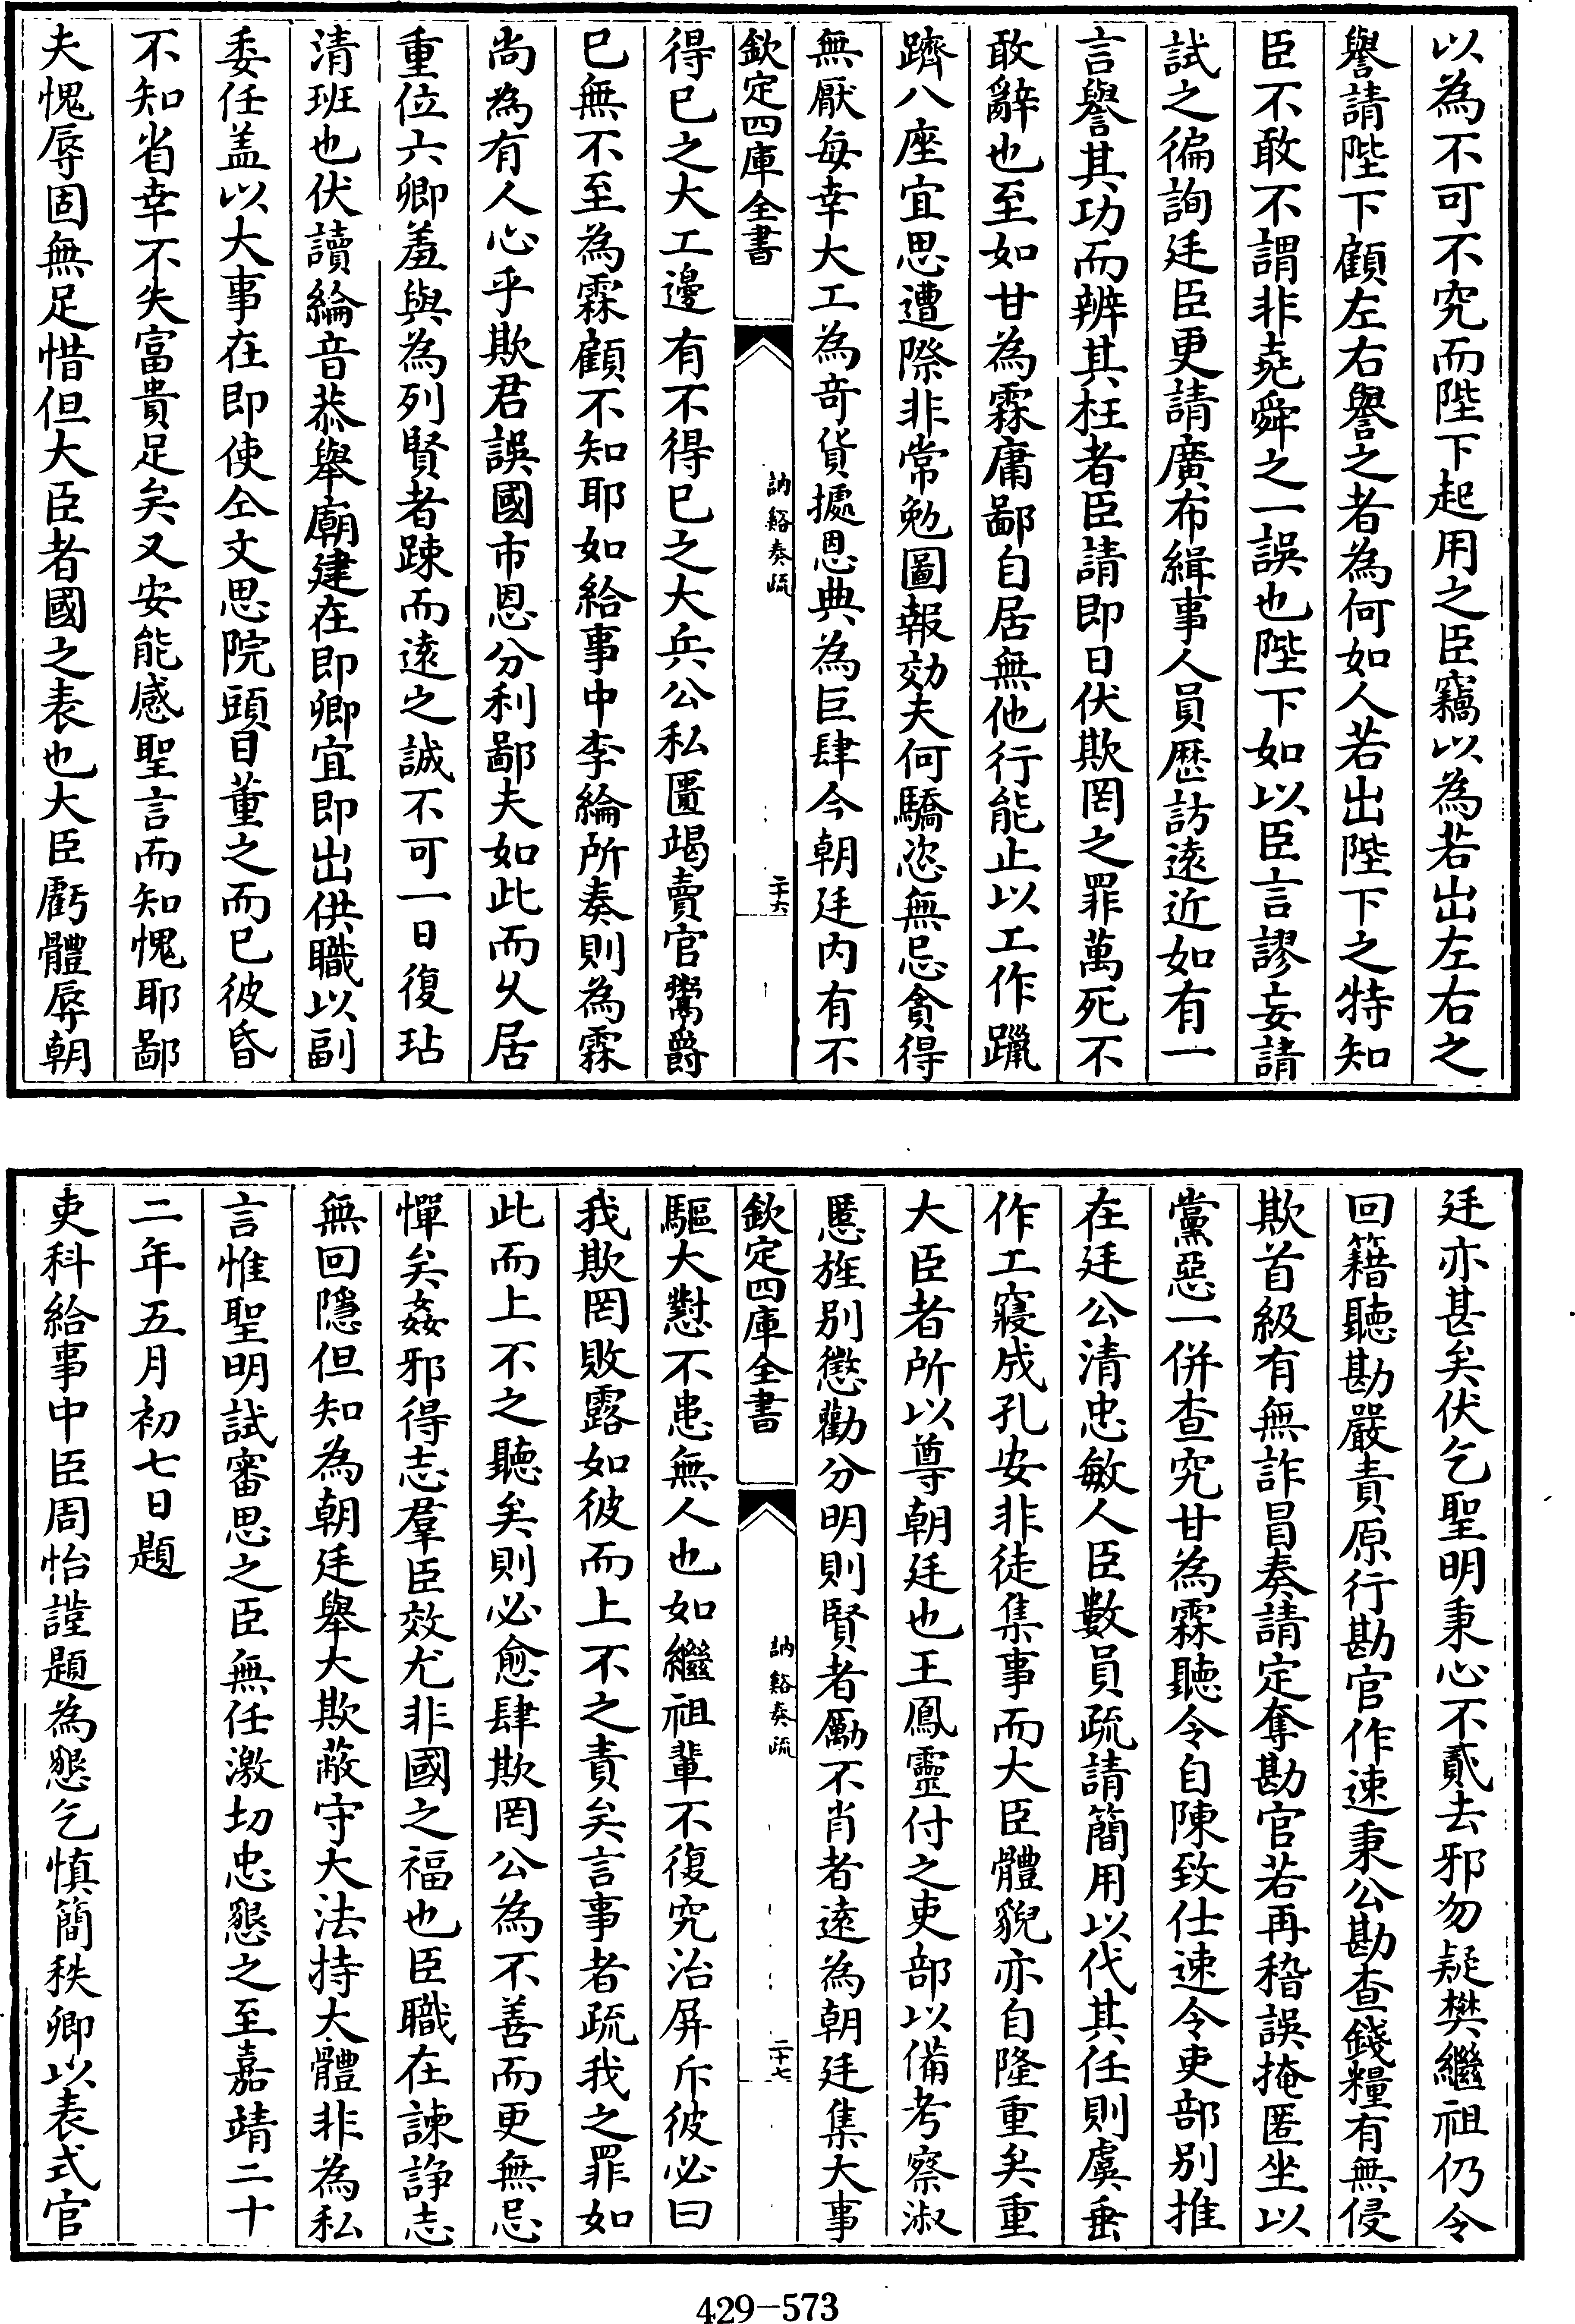 以為不可不究而陛下起用之臣竊以為若出左右之
譽請陛下顧左右譽之者為何如人若出陛下之特知
臣不敢不謂非堯舜之一誤也陛下如以臣言謬妄請
試之徧詢廷臣更請廣布緝事人員歷訪遠近如有一
言譽其功而辨其枉者臣請即日伏欺罔之罪萬死不
敢辭也至如甘為霖庸鄙自居無他行能止以工作躐
躋八座宜思遭際非常勉圖報効夫何驕恣無忌貪得
無厭每幸大工為奇貨攄恩典為巨肆今朝廷內有不
欽定四庫全書
訥谿奏疏
二十六
得已之大工邊有不得已之大兵公私匱竭賣官鬻爵
已無不至為霖顧不知耶如給事中李綸所奏則為霖
尚為有人心乎欺君誤國市恩分利鄙夫如此而乆居
重位六卿羞與為列賢者踈而遠之誠不可一日復玷
清班也伏讀綸音恭舉廟建在即卿宜即出供職以副
委任盖以大事在即使仝文思院頭目董之而已彼昏
不知省幸不失富貴足矣又安能感聖言而知愧耶鄙
夫愧辱固無足惜但大臣者國之表也大臣虧體辱朝
廷亦甚矣伏乞聖明秉心不貳去邪勿疑樊繼祖仍令
回籍聽勘嚴責原行勘官作速秉公勘查錢糧有無侵
欺首級有無詐冒奏請定奪勘官若再稽誤掩匿坐以
黨惡一併查究甘為霖聽令自陳致仕速令吏部別推
在廷公清忠敏人臣數員疏請簡用以代其任則虞垂
作工寢成孔安非徒集事而大臣體貌亦自隆重矣重
大臣者所以尊朝廷也王鳳靈付之吏部以備考察淑
慝旌別懲勸分明則賢者勵不肖者遠為朝廷集大事
欽定四庫全書
訥谿奏疏
二十七
驅大懟不患無人也如繼祖輩不復究治屏斥彼必曰
我欺罔敗露如彼而上不之責矣言事者疏我之罪如
此而上不之聽矣則必愈肆欺罔公為不善而更無忌
憚矣姦邪得志羣臣效尤非國之福也臣職在諫諍志
無回隱但知為朝廷舉大欺蔽守大法持大體非為私
言惟聖明試審思之臣無任激切忠懇之至嘉靖二十
二年五月初七日題
吏科給事中臣周怡謹題為懇乞慎簡秩卿以表式官
429-573